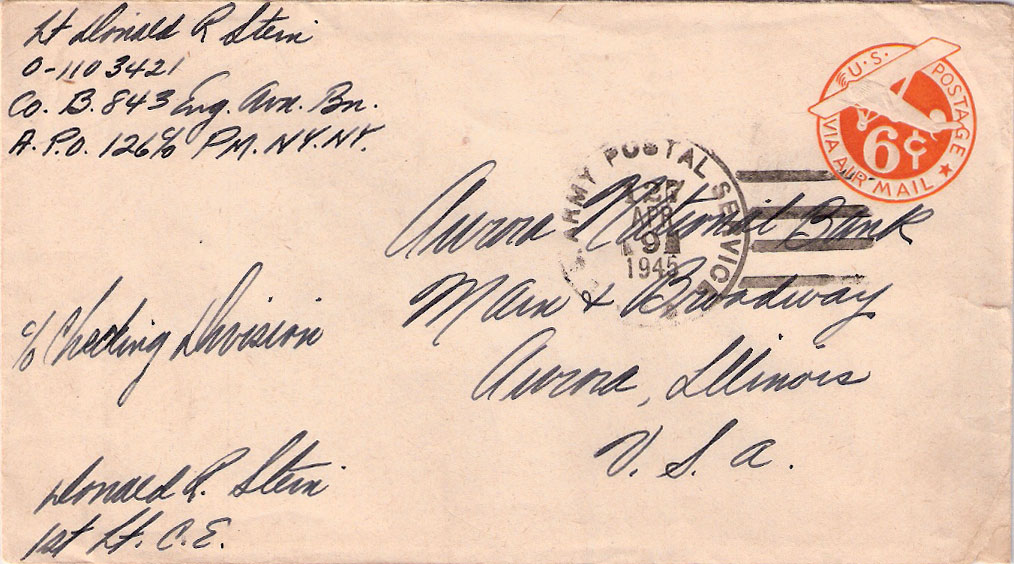 Lt Donald R Stein
O-1103421
Co. B. 843 Eng. Avn. Bn.
A.P.O. 126 c/o PM. NY. NY.
U.S. POSTAGE
6¢
VIA AIR MAIL
U.S. ARMY POSTAL SERVICE
APR
9
1945
Aurora National Bank
Main & Broadway
Aurora, Illinois
U. S. A.
c/o Checking Division
Donald R. Stein
1st Lt. C.E.